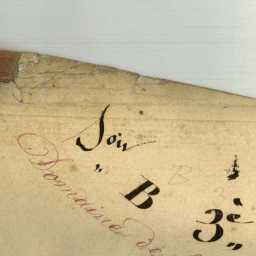 Soir
B
3è
Domaine de